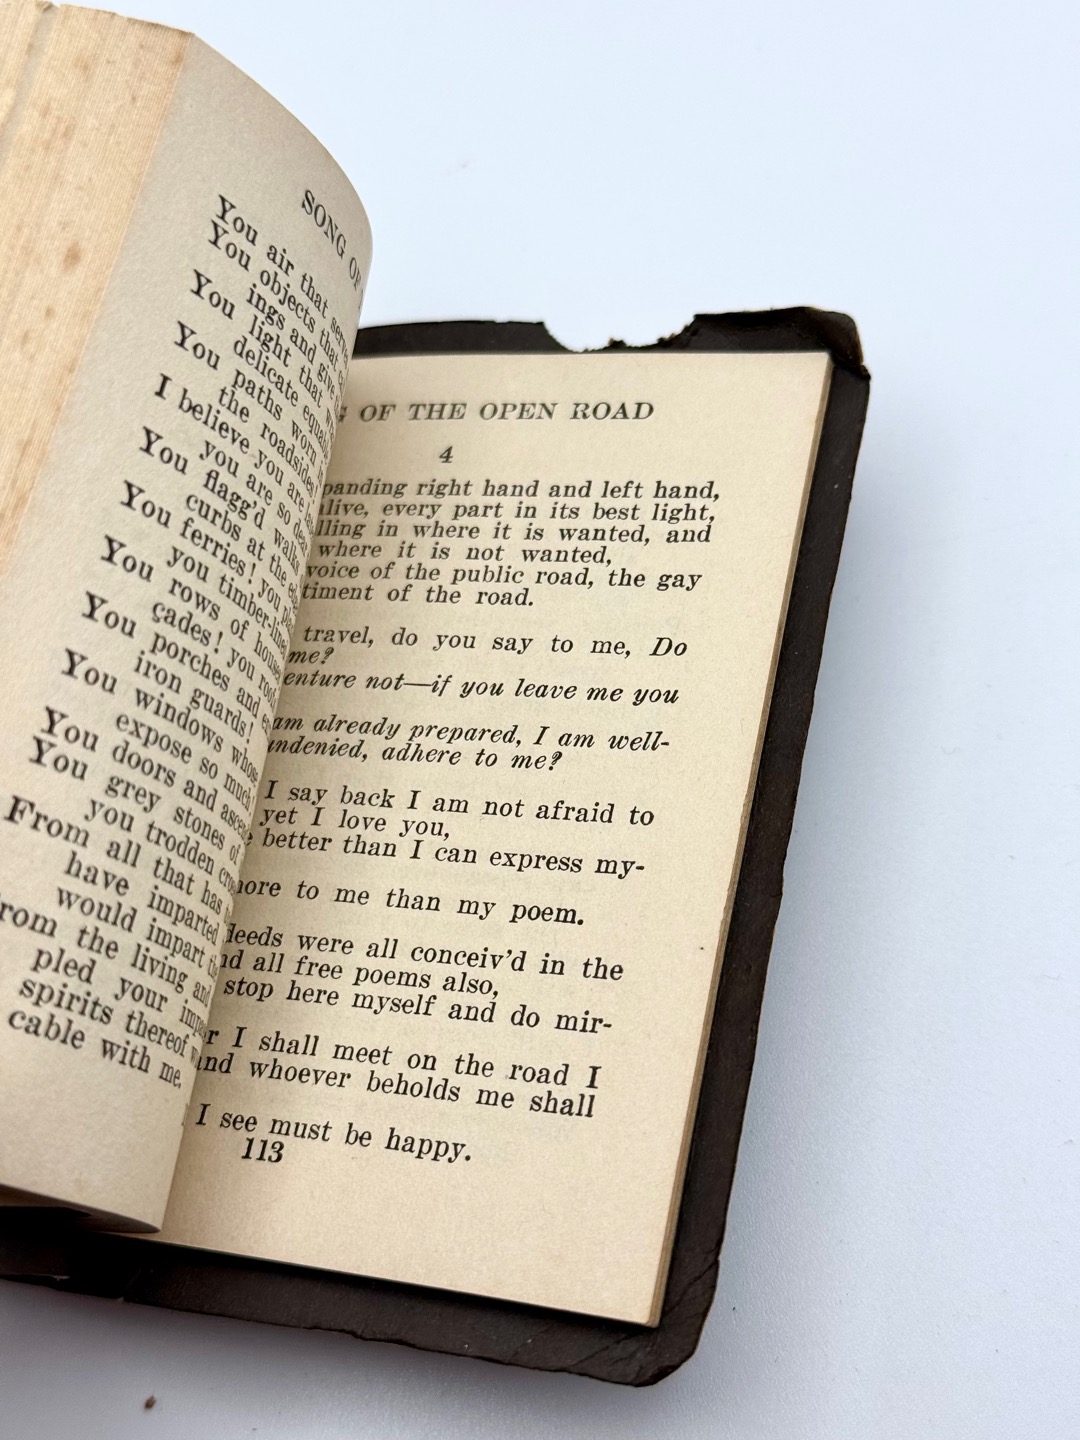 SONG OF
You air that serve
You objects that
ings and give
You light that
delicate equable
You paths worn
the roadsides!
I believe you are
you are so dear
You flagg'd walks
curbs at the
You ferries! you
you timber-lined
You rows of
çades! you
You porches and
iron guards!
You windows whose
expose so much!
You doors and
You grey stones of
you trodden
From all that has
have imparted
would impart
rom the living and
pled your
spirits thereof
cable with me.
OF THE OPEN ROAD
4
panding right hand and left hand,
alive, every part in its best light,
lling in where it is wanted, and
where it is not wanted,
voice of the public road, the gay
timent of the road.
travel, do you say to me, Do
me?
enture not—if you leave me you
am already prepared, I am well-
undenied, adhere to me?
I say back I am not afraid to
yet I love you,
better than I can express my-
more to me than my poem.
deeds were all conceiv'd in the
nd all free poems also,
stop here myself and do mir-
r I shall meet on the road I
and whoever beholds me shall
I see must be happy.
113